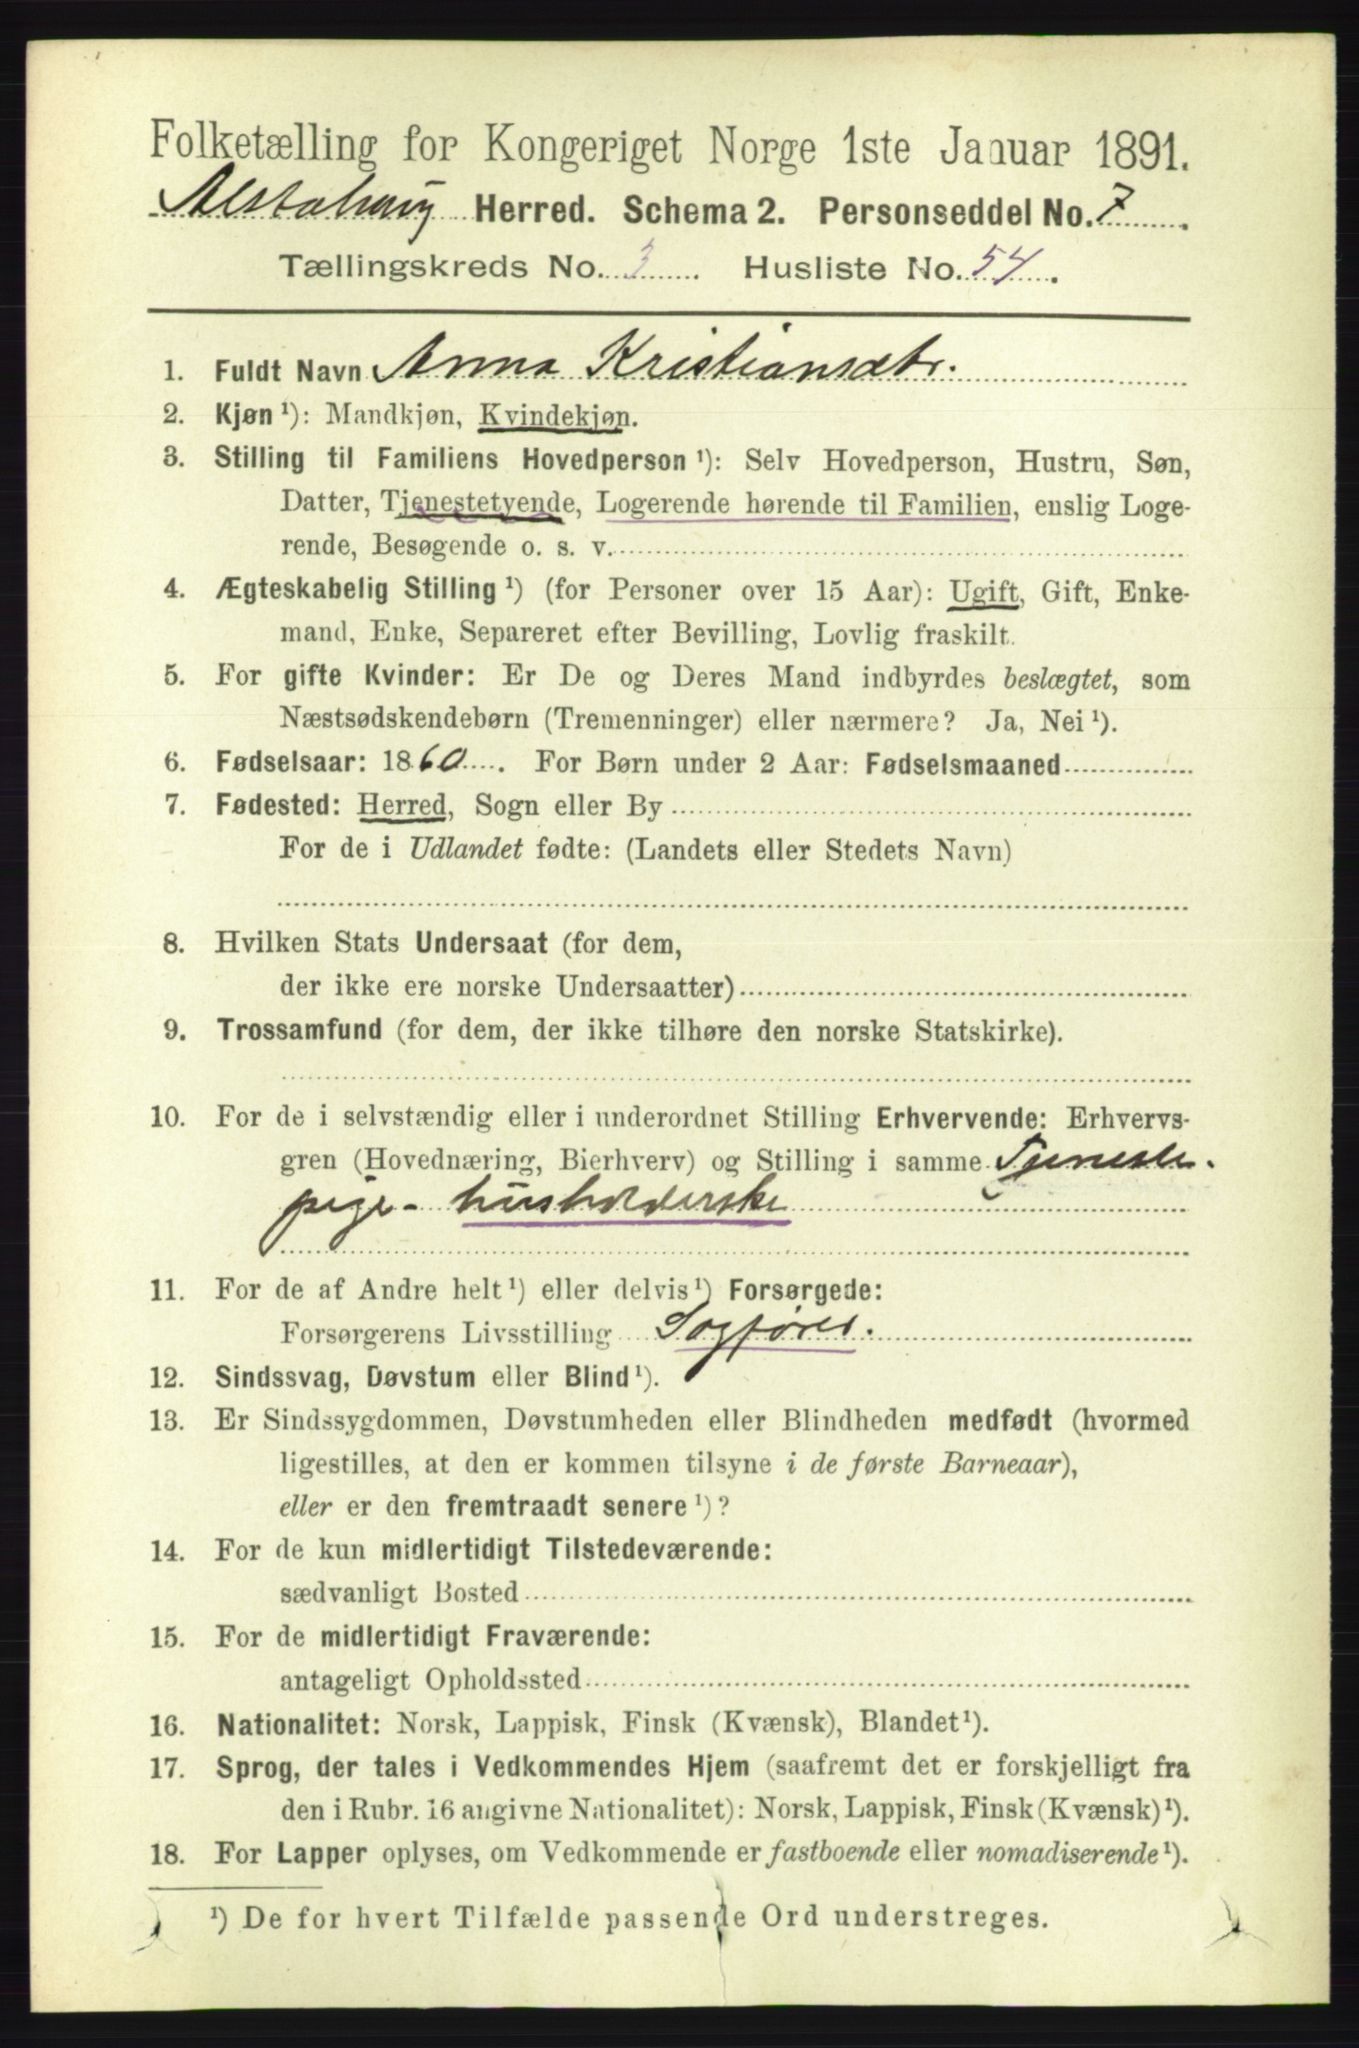 Folketælling for Kongeriget Norge 1ste Januar 1891.
Alstahaug Herred. Schema 2. Personseddel No. 7.
Tællingskreds No. 3. Husliste No. 54.
1. Fuldt Navn Anna Kristiansdtr.
2. Kjøn ¹): Mandkjøn, Kvindekjøn.
3. Stilling til Familiens Hovedperson ¹): Selv Hovedperson, Hustru, Søn,
Datter, Tjenestetyende, Logerende hørende til Familien, enslig Loge-
rende, Besøgende o. s. v.
4. Ægteskabelig Stilling ¹) (for Personer over 15 Aar): Ugift, Gift, Enke-
mand, Enke, Separeret efter Bevilling, Lovlig fraskilt.
5. For gifte Kvinder: Er De og Deres Mand indbyrdes beslægtet, som
Næstsødskendebørn (Tremenninger) eller nærmere? Ja, Nei ¹).
6. Fødselsaar: 1860. For Børn under 2 Aar: Fødselsmaaned
7. Fødested: Herred, Sogn eller By
For de i Udlandet fødte: (Landets eller Stedets Navn)
8. Hvilken Stats Undersaat (for dem,
der ikke ere norske Undersaatter)
9. Trossamfund (for dem, der ikke tilhøre den norske Statskirke).
10. For de i selvstændig eller i underordnet Stilling Erhvervende: Erhvervs-
gren (Hovednæring, Bierhverv) og Stilling i samme Tjeneste-
pige - husholderske
11. For de af Andre helt ¹) eller delvis ¹) Forsørgede:
Forsørgerens Livsstilling Sagfører.
12. Sindssvag, Døvstum eller Blind ¹).
13. Er Sindssygdommen, Døvstumheden eller Blindheden medfødt (hvormed
ligestilles, at den er kommen tilsyne i de første Barneaar),
eller er den fremtraadt senere ¹)?
14. For de kun midlertidigt Tilstedeværende:
sædvanligt Bosted
15. For de midlertidigt Fraværende:
antageligt Opholdssted
16. Nationalitet: Norsk, Lappisk, Finsk (Kvænsk), Blandet ¹).
17. Sprog, der tales i Vedkommendes Hjem (saafremt det er forskjelligt fra
den i Rubr. 16 angivne Nationalitet): Norsk, Lappisk, Finsk (Kvænsk) ¹).
18. For Lapper oplyses, om Vedkommende er fastboende eller nomadiserende ¹).
¹) De for hvert Tilfælde passende Ord understreges.